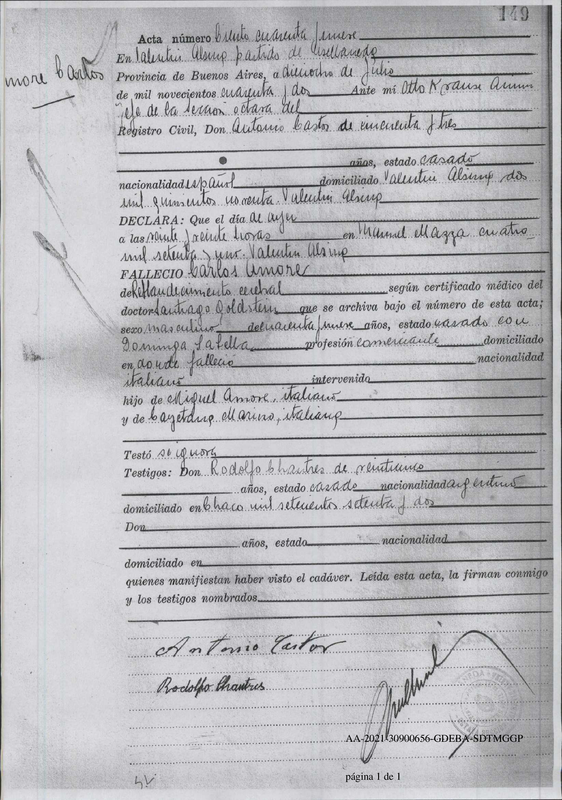 149
Acta número Ciento cuarenta y nueve
En Valentin Alsina partido de Avellaneda
Provincia de Buenos Aires, a dieciocho de Julio
de mil novecientos cuarenta y dos Ante mi Otto Krause
jefe de la Seccion octava del
Registro Civil, Don Antonio Castor de cincuenta y tres
años, estado casado
nacionalidad español domiciliado Valentin Alsina dos
mil quinientos noventa. Valentin Alsina
DECLARA: Que el día de ayer
a las veinte y veinte horas en Manuel Mazza cuatro
mil setenta y uno. Valentin Alsina
FALLECIO Carlos Amore
de Reblandecimiento cerebral según certificado médico del
doctor Santiago Goldstein que se archiva bajo el número de esta acta;
sexo masculino de cuarenta y nueve años, estado casado con
Dominga profesión comerciante domiciliado
en donde falleció nacionalidad
italiano intervenido
hijo de Miguel Amore, italiano
y de Cayetana Marino, italiana
Testó se ignora
Testigos: Don Rodolfo Chantres de veintiuno
años, estado casado nacionalidad argentino
domiciliado en Chaco mil setecientos setenta y dos
Don
años, estado nacionalidad
domiciliado en
quienes manifiestan haber visto el cadáver. Leída esta acta, la firman conmigo
y los testigos nombrados
Antonio Castor
Rodolfo Chantres
AA-2021-30900656-GDEBA-SDTMGGP
página 1 de 1